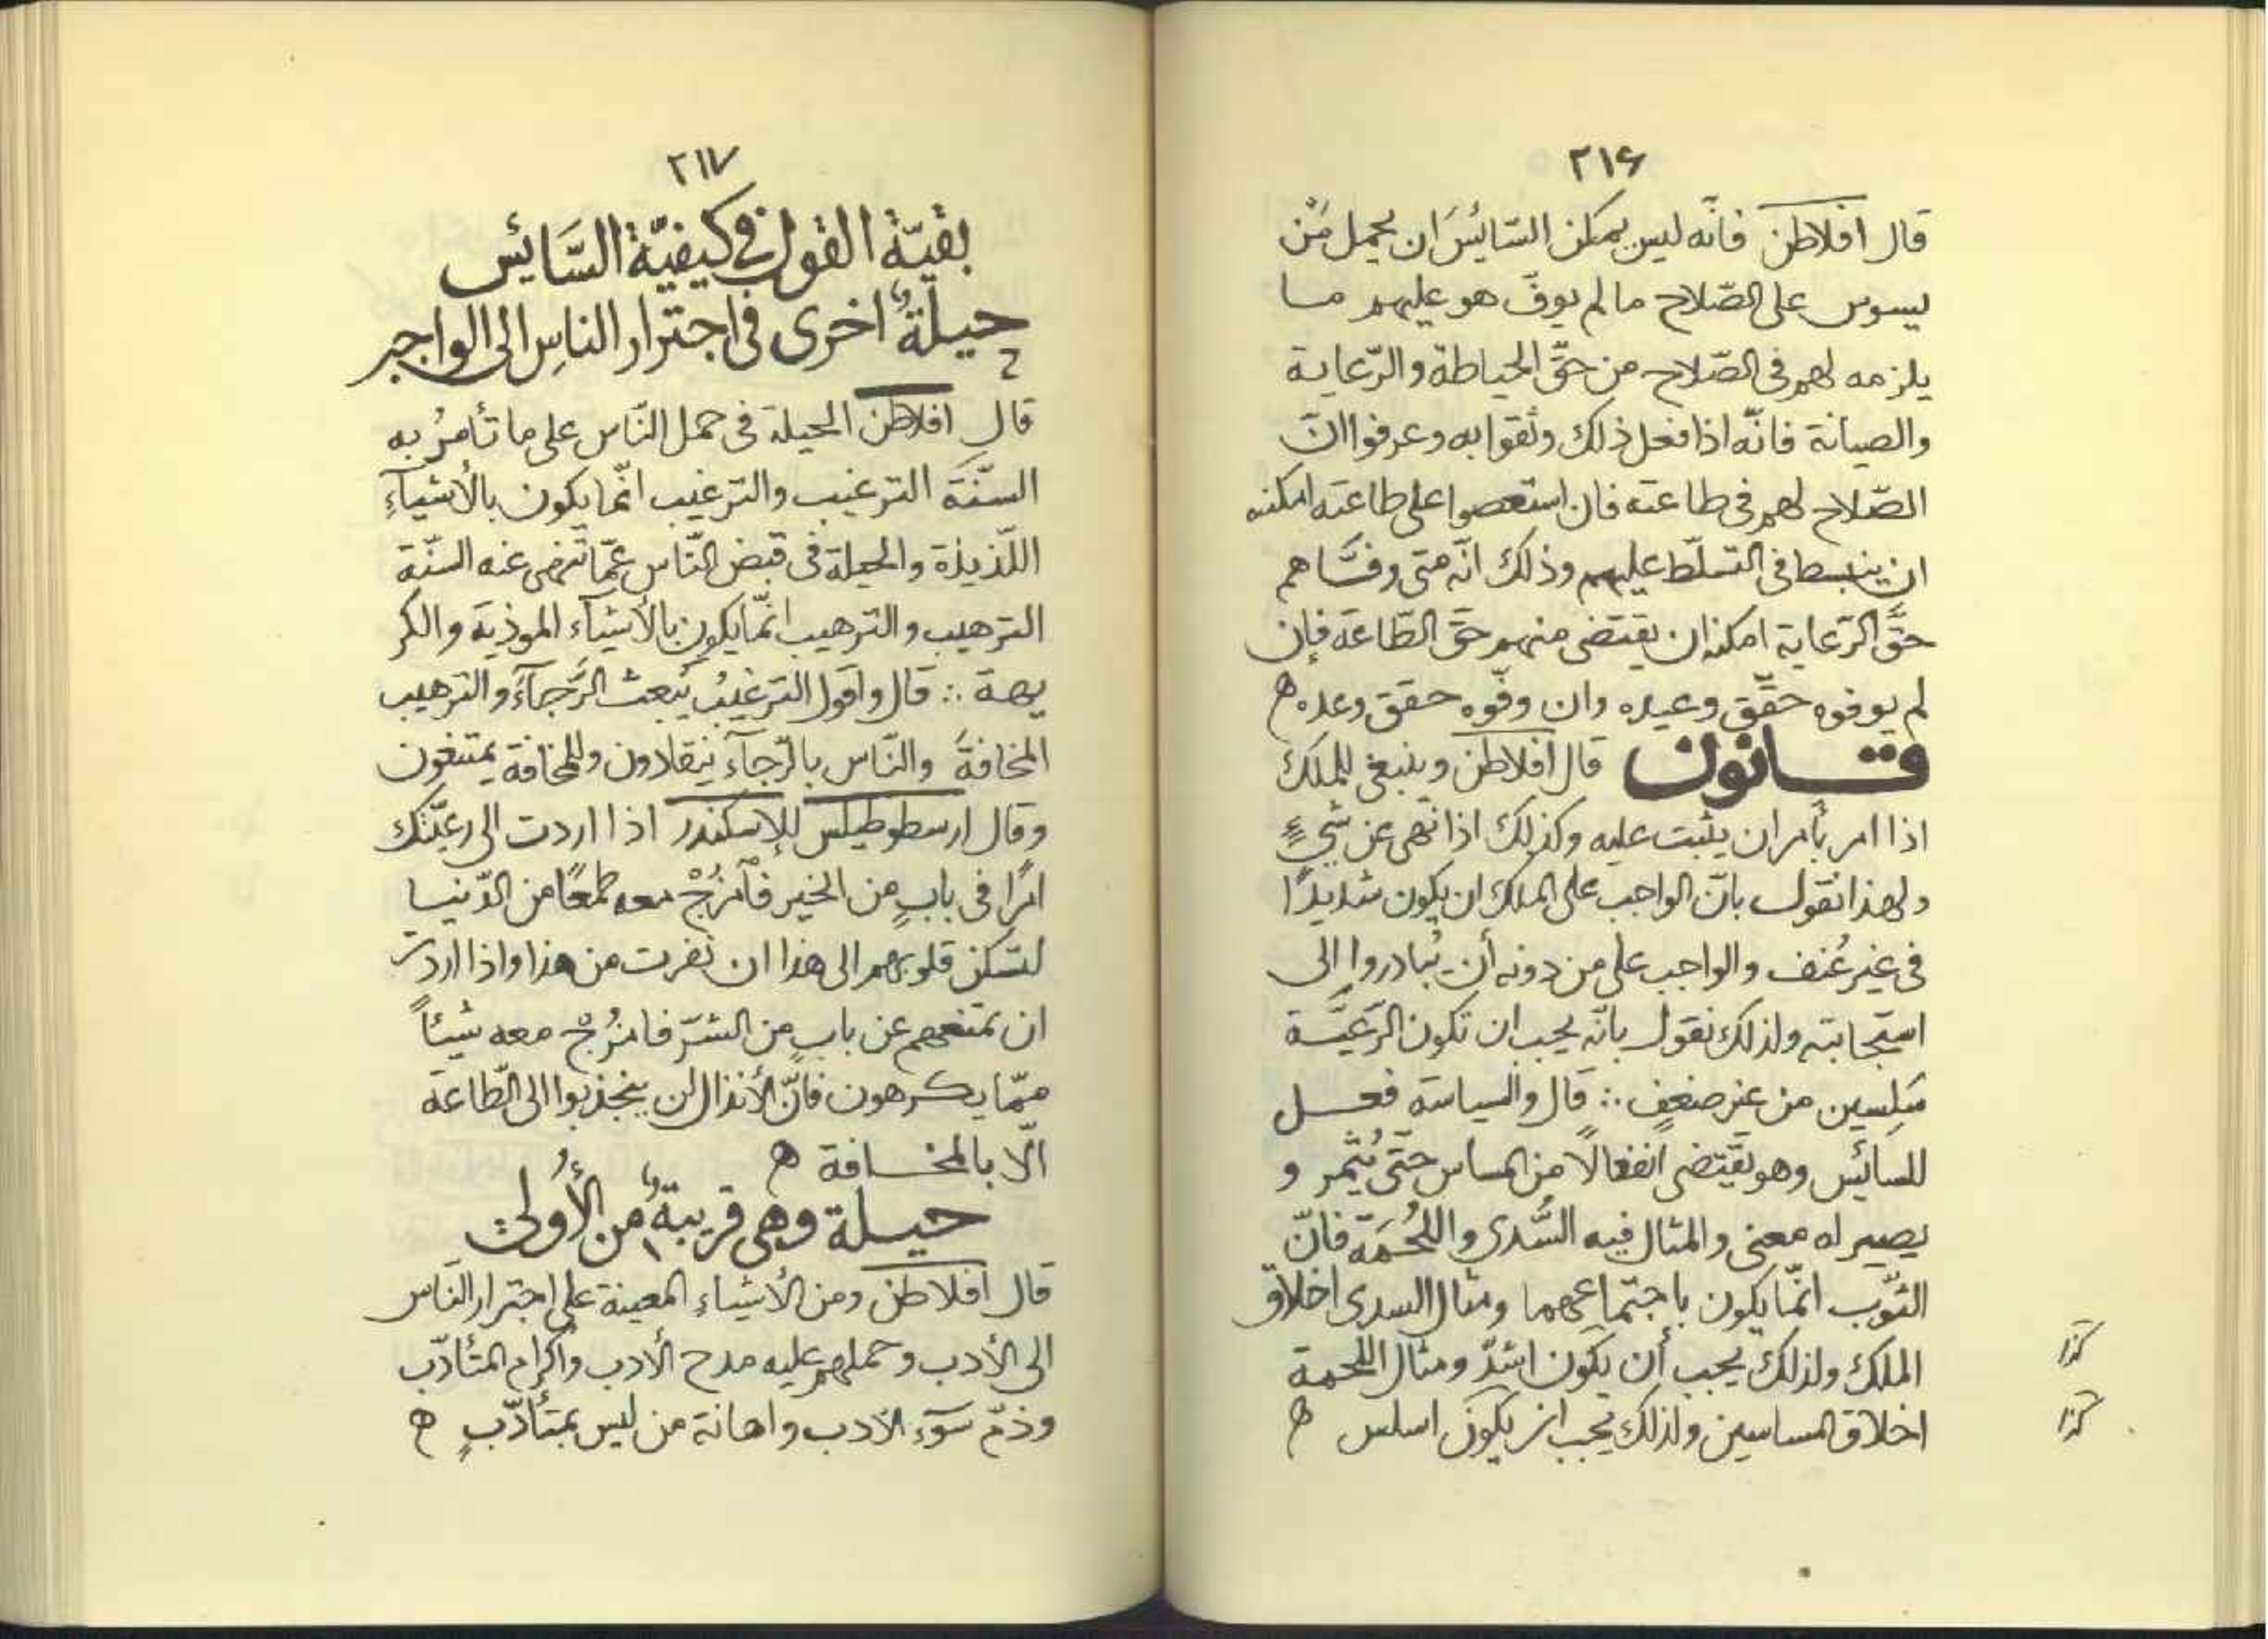 ٢١۶
قال افلاطن فانّه ليس يمكن السّائسَ ان يحمل مَنْ
يسوس على الصّلاح ما لم يوفّ هو عليهم ما
يلزمه لهم فى الصّلاح من حقّ الحياطة والرّعاية
والصيانة فانّه اذا فعل ذلك وثقوا به وعرفوا انّ
الصّلاح لهم فى طاعته فان استعصوا على طاعته امكنه
ان ينبسط فى التسلّط عليهم وذلك انّه متى وفّاهم
حقَّ الرّعاية امكنه ان يقتضى منهم حقّ الطّاعة فإن
لم يوفوه حقّق وعيده وان وفّوه حقق وعده ه
قانون قال افلاطن وينبغى للملك
اذا امر بأمر ان يثبت عليه وكذلك اذا نهى عن شىءٍ
ولهذا نقول بانّ الواجب على الملك ان يكون شديدًا
فى غير عُنف والواجب على من دونه أن يُبادروا الى
استجابته ولذلك نقول بانّه يجب ان تكون الرّعيّة
سَلِسين من غير ضعفٍ ∴ قال والسياسة فعل
للسائس وهو يقتضى انفعالًا من المساس حتّى يُثمر و
يصير له معنى والمثال فيه السَّدى واللُحْمَة فانّ
الثوّب انّما يكون باجتماعهما ومثال السدى اخلاق
الملك ولذلك يجب أن يكون اشدّ ومثال اللحمة
كذا
اخلاق المساسين ولذلك يجب ان يكون اسلس ه
كذا
٢١٧
بقيّة القول فى كيفيّة السَّائس
حيلةٌ اخرى فى اجترار الناسِ الى الواجب
قال افلاطن الحيلة فى حمل النّاس على ما تأمرُ به
السنّة الترغيب والترغيب انّما يكون بالأشيآءِ
اللّذيذة والحيلة فى قبض النّاس عمّا تنهى عنه السنّة
الترهيب والترهيب انّما يكون بالأشيآء الموذية والكر
يهة ∴ قال واقول الترغيبُ يَبعث الرَّجآءَ والترهيب
المخافةَ والنّاس بالرّجآء ينقادون وللمخافة يمتنعون
وقال ارسطوطيلس للإسكندر اذا اردت الى رعيّتك
امرًا فى بابٍ من الخير فآمْزُجْ معه طمعًا من الدّنيا
لتسكن قلوبهم الى هذا ان نفرت من هذا واذا اردت
ان تمنعهم عن بابٍ من الشرّ فامزُجْ معه شيئاً
ممّا يكرهون فانّ الأنذال لن ينجذبوا الى الطّاعة
الّا بالمخافة ه
حيلة وهى قريبةٌ من الأُولىٰ
قال افلاطن ومن الأشياءِ المعينة على اجترار النّاس
الى الأدب وحملهم عليه مدح الأدب واكرام المتأدّب
وذمّ سوٓء الادب واهانة من ليس بمتأدّبٍ ه